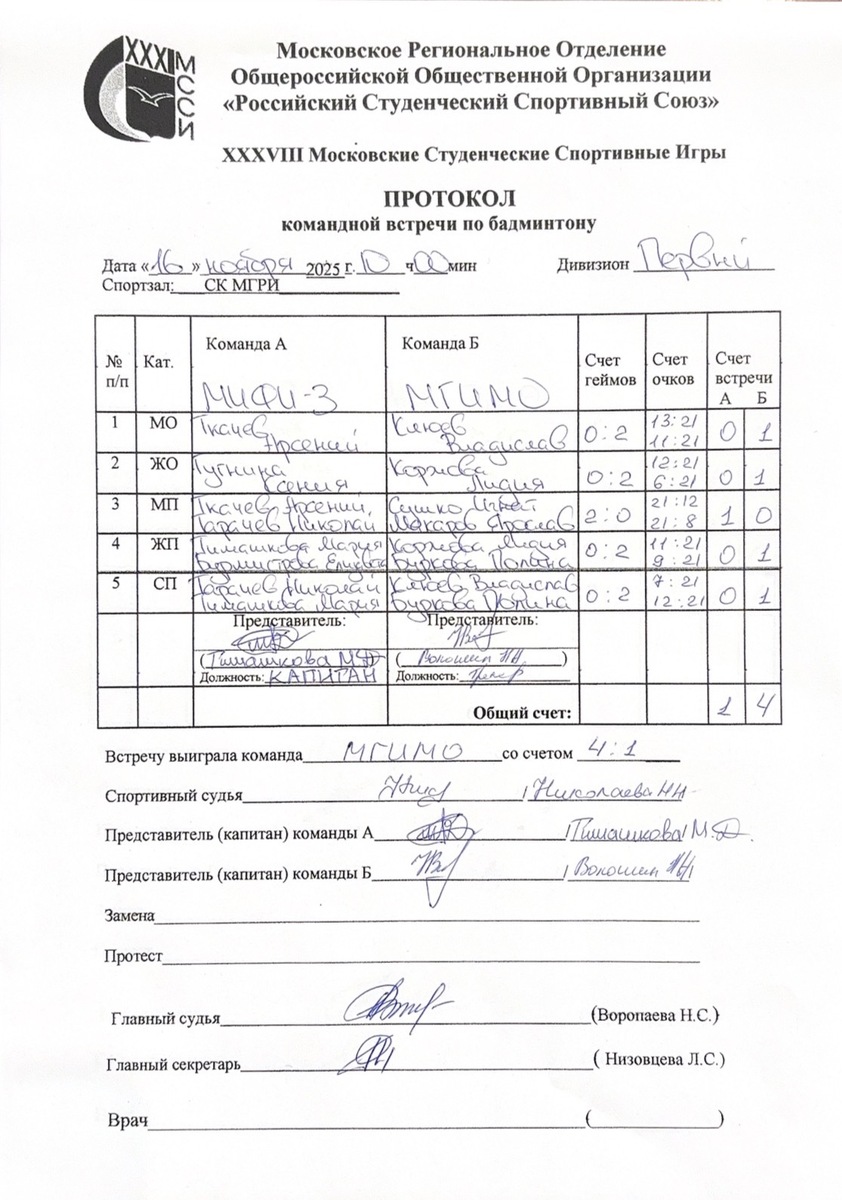 XXXI
МССИ
Московское Региональное Отделение
Общероссийской Общественной Организации
«Российский Студенческий Спортивный Союз»
XXXVIII Московские Студенческие Спортивные Игры
ПРОТОКОЛ
командной встречи по бадминтону
Дата «16» ноября 2025 г. 10 ч 00 мин Дивизион Первый
Спортзал: СК МГРИ
№ п/п Кат. Команда А Команда Б Счет геймов Счет очков Счет встречи А Б
МИФИ-3 МГИМО
1 МО Ткачев Арсений Клюев Владислав 0:2 13:21 11:21 0 1
2 ЖО Гугнина Ксения Коржова Лидия 0:2 12:21 6:21 0 1
3 МП Ткачев Арсений, Тарачев Николай Сушко Игнат Макаров Ярослав 2:0 21:12 21:8 1 0
4 ЖП Тимашкова Мария Бурмистрова Коржова Лидия Буркова Полина 0:2 11:21 9:21 0 1
5 СП Тарачев Николай Тимашкова Мария Клюев Владислав Буркова Полина 0:2 7:21 12:21 0 1
Представитель: Представитель:
(Тимашкова М.Д) (Волошин)
Должность: КАПИТАН Должность: тренер
Общий счет: 1 4
Встречу выиграла команда МГИМО со счетом 4:1
Спортивный судья / Николаева НН
Представитель (капитан) команды А /Тимашкова/ М.Д.
Представитель (капитан) команды Б / Волошин
Замена
Протест
Главный судья (Воропаева Н.С.)
Главный секретарь ( Низовцева Л.С.)
Врач ( )